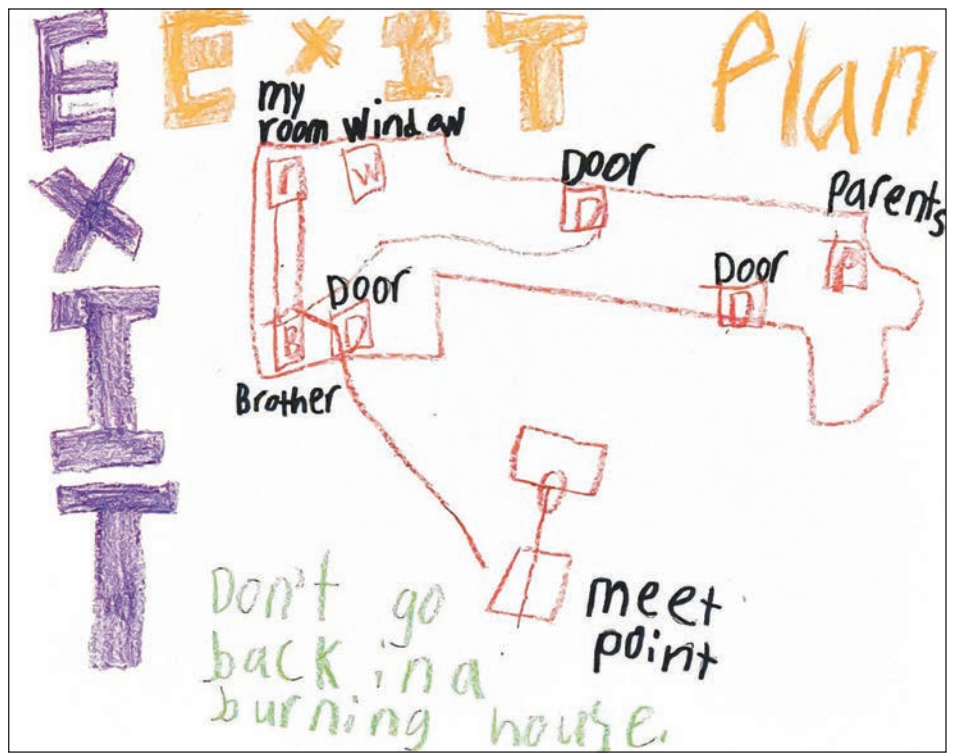 EXIT Plan
EXIT
my
room window
W
Door
D
parents
P
Door
D
Door
D
B
Brother
meet
point
Don't go
back in a
burning house.